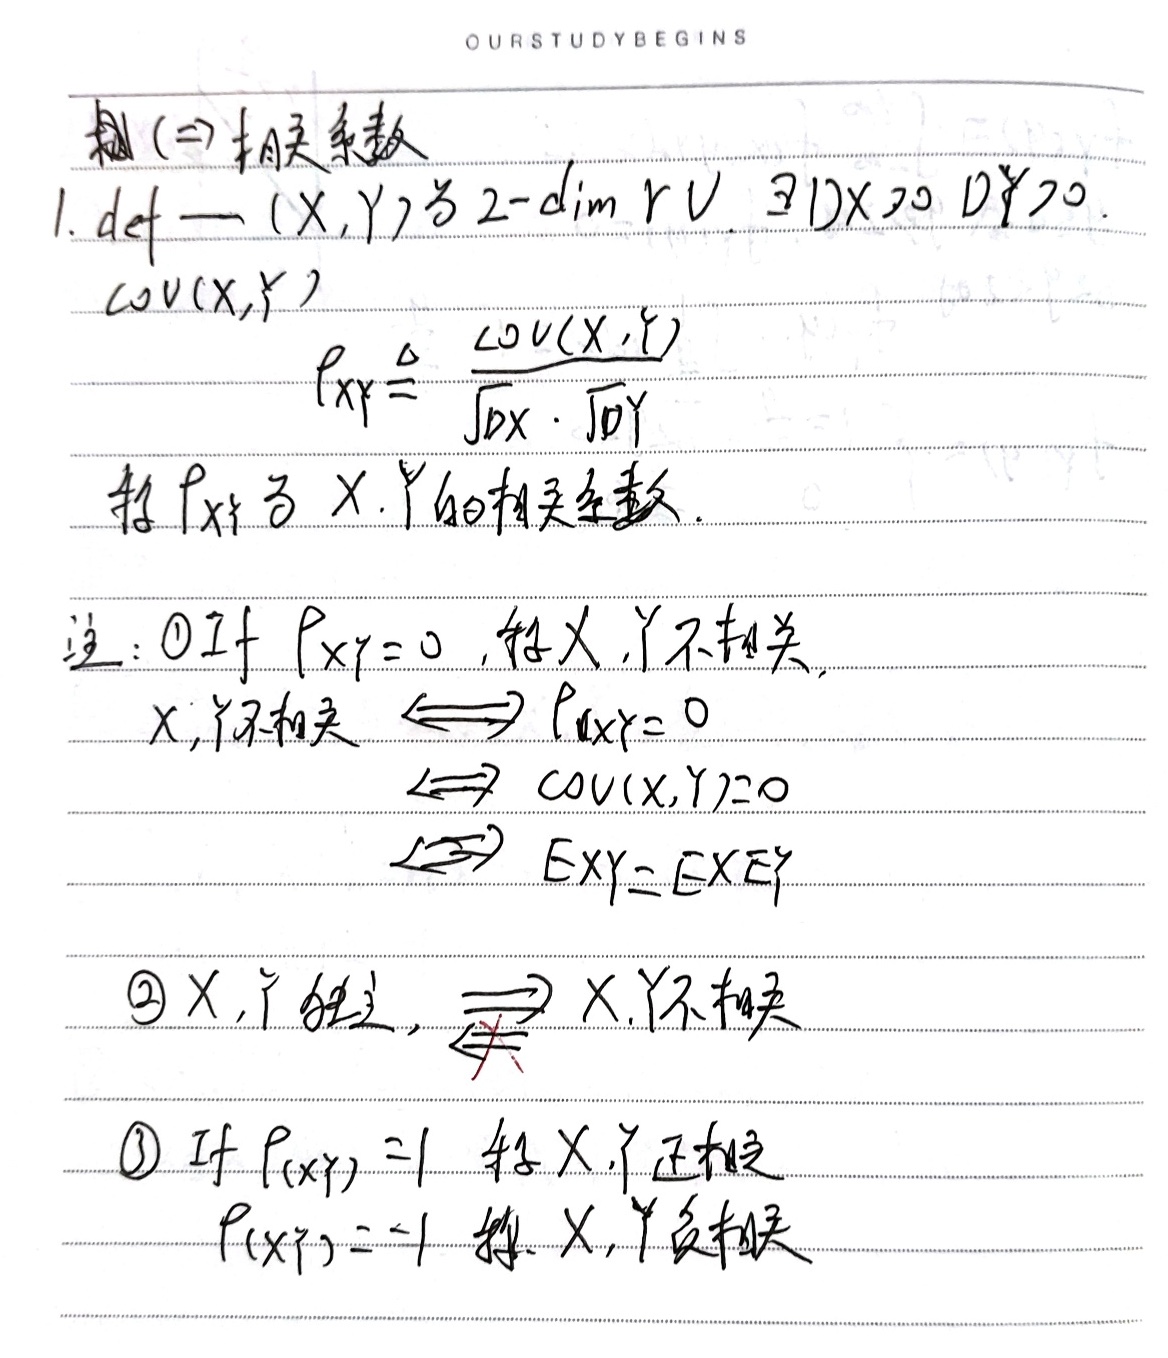 OURSTUDYBEGINS
(二) 相关系数
1. def — (X,Y)为2-dim r V. ∃DX>0 DY>0.
COV(X,Y)
ρXY ≜ COV(X,Y) / √DX · √DY
称 ρXY 为 X.Y的相关系数.
注: ①If ρXY=0 ,称X,Y不相关,
X,Y不相关 ⟺ ρXY=0
⟺ COV(X,Y)=0
⟺ EXY=EXEY
② X,Y独立, ⟹ X.Y不相关
⟸
③ If ρ(XY) =1 称X,Y正相关
ρ(XY)=-1 称 X,Y负相关